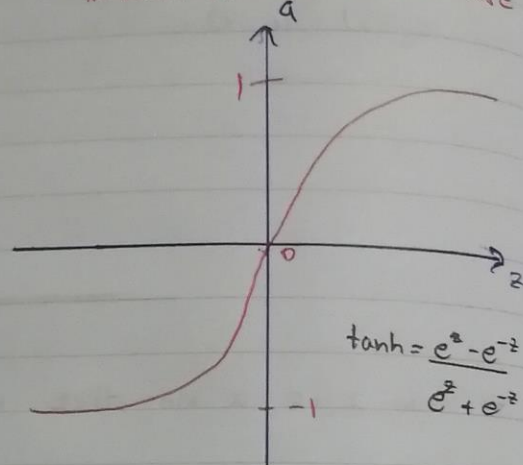 a
1
0
z
tanh = e^z - e^-z
e^z + e^-z
-1